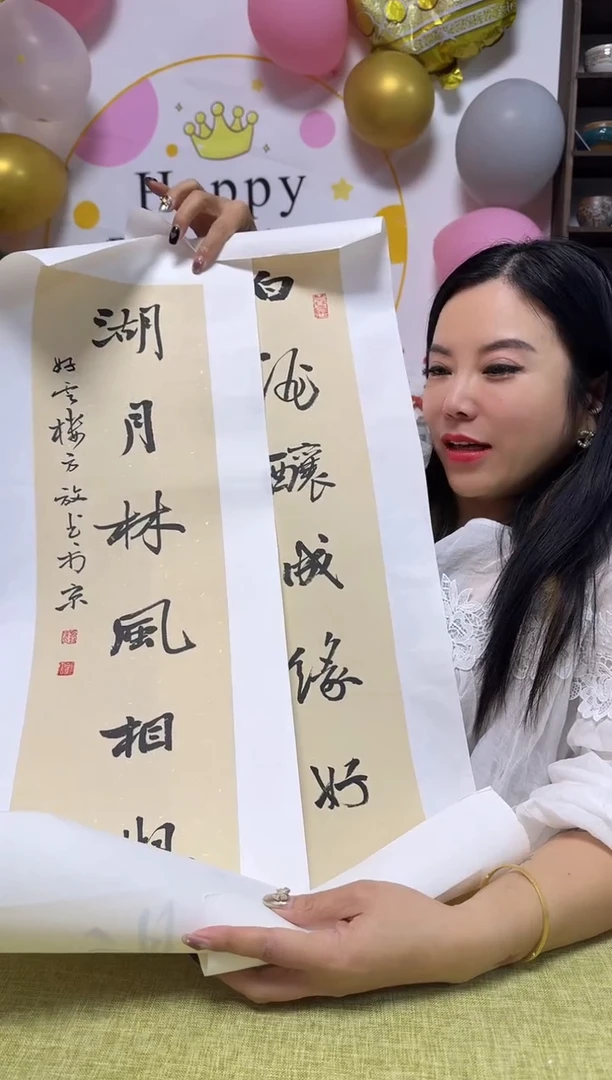 Happy
白酒釀成緣好
湖月林風相
好雲樓方放书於京